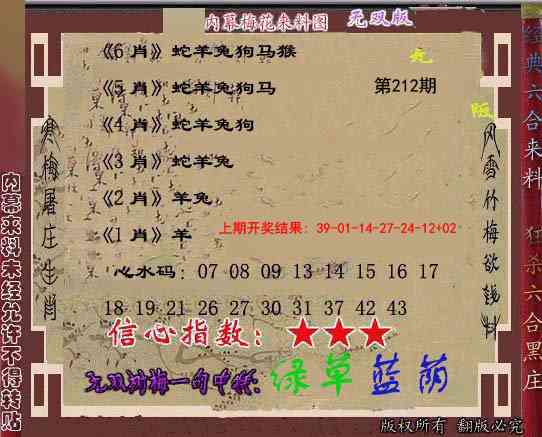 内幕梅花来料图 无双版
《6 肖》蛇羊兔狗马猴
无
《5 肖》蛇羊兔狗马
第212期
版
《4 肖》蛇羊兔狗
《3 肖》蛇羊兔
《2 肖》羊兔
《1 肖》羊
上期开奖结果: 39-01-14-27-24-12+02
心水码: 07 08 09 13 14 15 16 17
18 19 21 26 27 30 31 37 42 43
信心指数: ★★★
无双 梅一句中特: 绿草蓝荫
版权所有 翻版必究
寒梅屠庄生肖
风雪竹梅欲钱料
内幕来料未经允许不得转贴
经典六合来料
狂杀六合黑庄